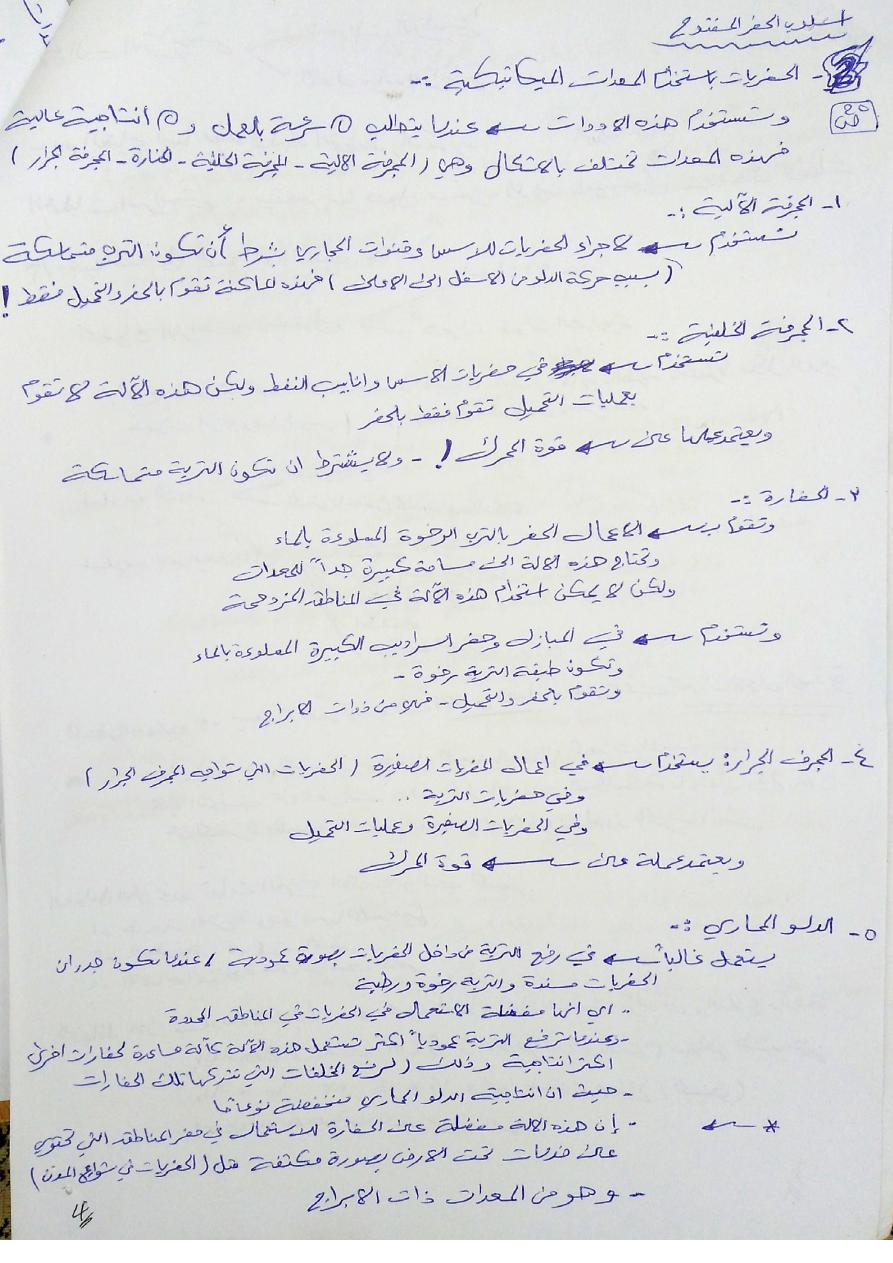 اسلوب الحفر المفتوح
2- الحفريات باستخدام المعدات الميكانيكية :-
وتستخدم هذه الادوات ← عندما يتطلب ① سرعة بالعمل و② انتاجية عالية
فهذه المعدات تختلف بالاشكال وهي ( المجرفة الالية - المجرفة الخلفية - الحفارة - المجرفة الجرار )
١- المجرفة الآلية :-
تستخدم ← لاجراء الحفريات للاسس وقنوات المجاري بشرط أن تكون الترب متماسكة
( بسبب حركة الدلو من الاسفل الى الاعلى ) فهذه الماكنة تقوم بالحفر والتحميل فقط !
٢- المجرفة الخلفية :-
تستخدم ← في حفريات الاسس وانابيب النفط ولكن هذه الآلة لا تقوم
بعمليات التحميل تقوم فقط بالحفر
ويعتمد عملها على ← قوة المحرك ! - ولا يشترط ان تكون التربة متماسكة
٣- الحفارة :-
وتقوم بـ ← الاعمال الحفر بالترب الرخوة المملوءة بالماء
وتحتاج هذه الالة الى مساحة كبيرة جداً للمعدات
ولكن لا يمكن استخدام هذه الآلة في المناطق المزدحمة
وتستخدم ← في المبازل وحفر السراديب الكبيرة المملوءة بالماء
وتكون طبقة التربة رخوة -
وتقوم بالحفر والتحميل - فهي من ذوات الابراج
٤- المجرف الجرار: يستخدم ← في اعمال الحفريات الصغيرة ( الحفريات التي تواجه المجرف الجرار )
وفي حفريات التربة ..
وفي الحفريات الصغيرة وعمليات التحميل
ويعتمد عملة على ← قوة المحرك
٥- الدلو المحاري :-
يستعمل غالباً ← في رفع التربة من داخل الحفريات بصورة عمودية ، عندما تكون جدران
الحفريات مسندة والتربة رخوة ورطبة
.. اي انها مفضلة الاستعمال في الحفريات في المناطق المحددة
- وعندما ترفع التربة عمودياً اكثر تستعمل هذه الآلة كآلة مساعدة لحفارات اخرى
اكثر انتاجية وذلك ( لرفع المخلفات التي تتركها تلك الحفارات
- حيث ان انتاجية الدلو المحاري منخفضة نوعا ما
* ← - إن هذه الالة مفضلة على الحفارة للاستعمال في حفر المناطق التي تحتوي
على خدمات تحت الارض بصورة مكثفة مثل ( الحفريات في شوارع المدن )
- وهو من المعدات ذات الابراج
4